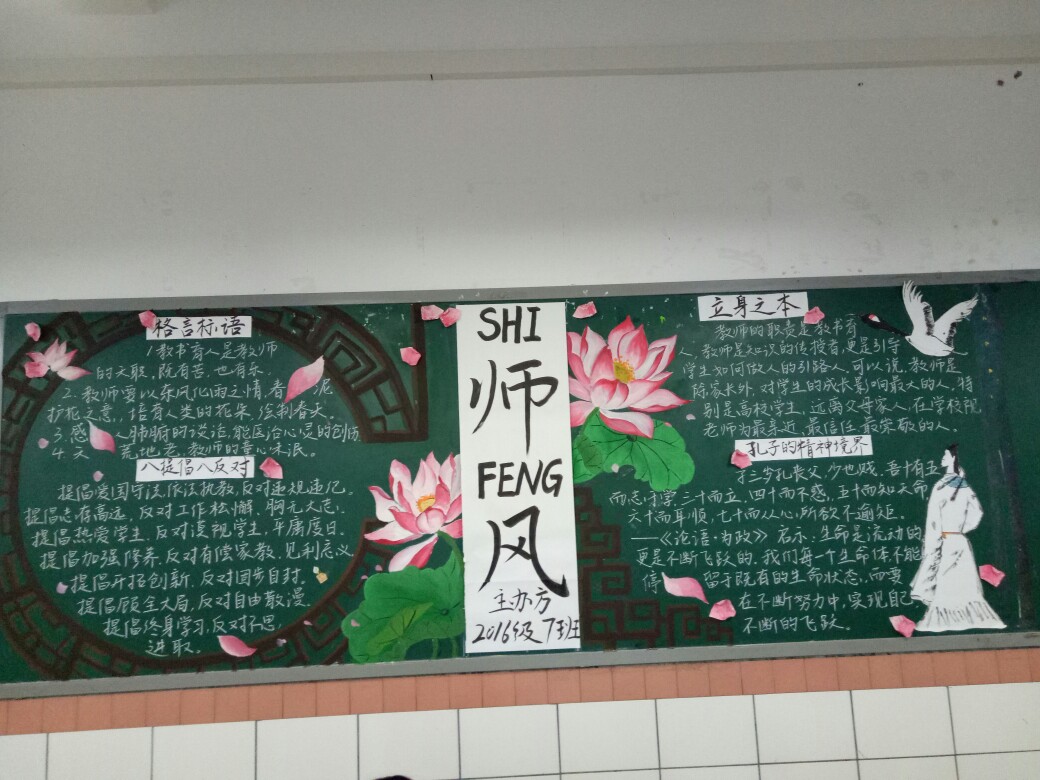 格言标语
1.教书育人是教师
的天职，既有苦，也有乐
2.教师要以东风化雨之情，春泥
护花之意，培育人类的花朵，绘制春天。
3.感人肺腑的谈话，能医治心灵的创伤
4.天荒地老，教师的童心未泯。
八提倡八反对
提倡爱国守法，依法执教，反对违规违纪。
提倡志存高远，反对工作松懈，胸无大志。
提倡热爱学生，反对漠视学生，平庸度日。
提倡加强修养，反对有偿家教，见利忘义
提倡开拓创新，反对固步自封。
提倡顾全大局，反对自由散漫。
提倡终身学习，反对不思
进取。
SHI
师
FENG
风
主办方
2016级7班
立身之本
教师的职责是教书育
人，教师是知识的传授者，更是引导
学生如何做人的引路人，可以说，教师是
除家长外，对学生的成长影响最大的人。特
别是高校学生，远离父母家人，在学校视
老师为最亲近、最信任、最崇敬的人。
孔子的精神境界
孔子三岁丧父，少也贱，吾十有五
而志于学，三十而立，四十而不惑，五十而知天命
六十而耳顺，七十而从心所欲不逾矩。
——《论语·为政》启示：生命是流动的
更是不断飞跃的，我们每一个生命体不能
停留于既有的生命状态，而要
在不断努力中，实现自己
不断的飞跃。